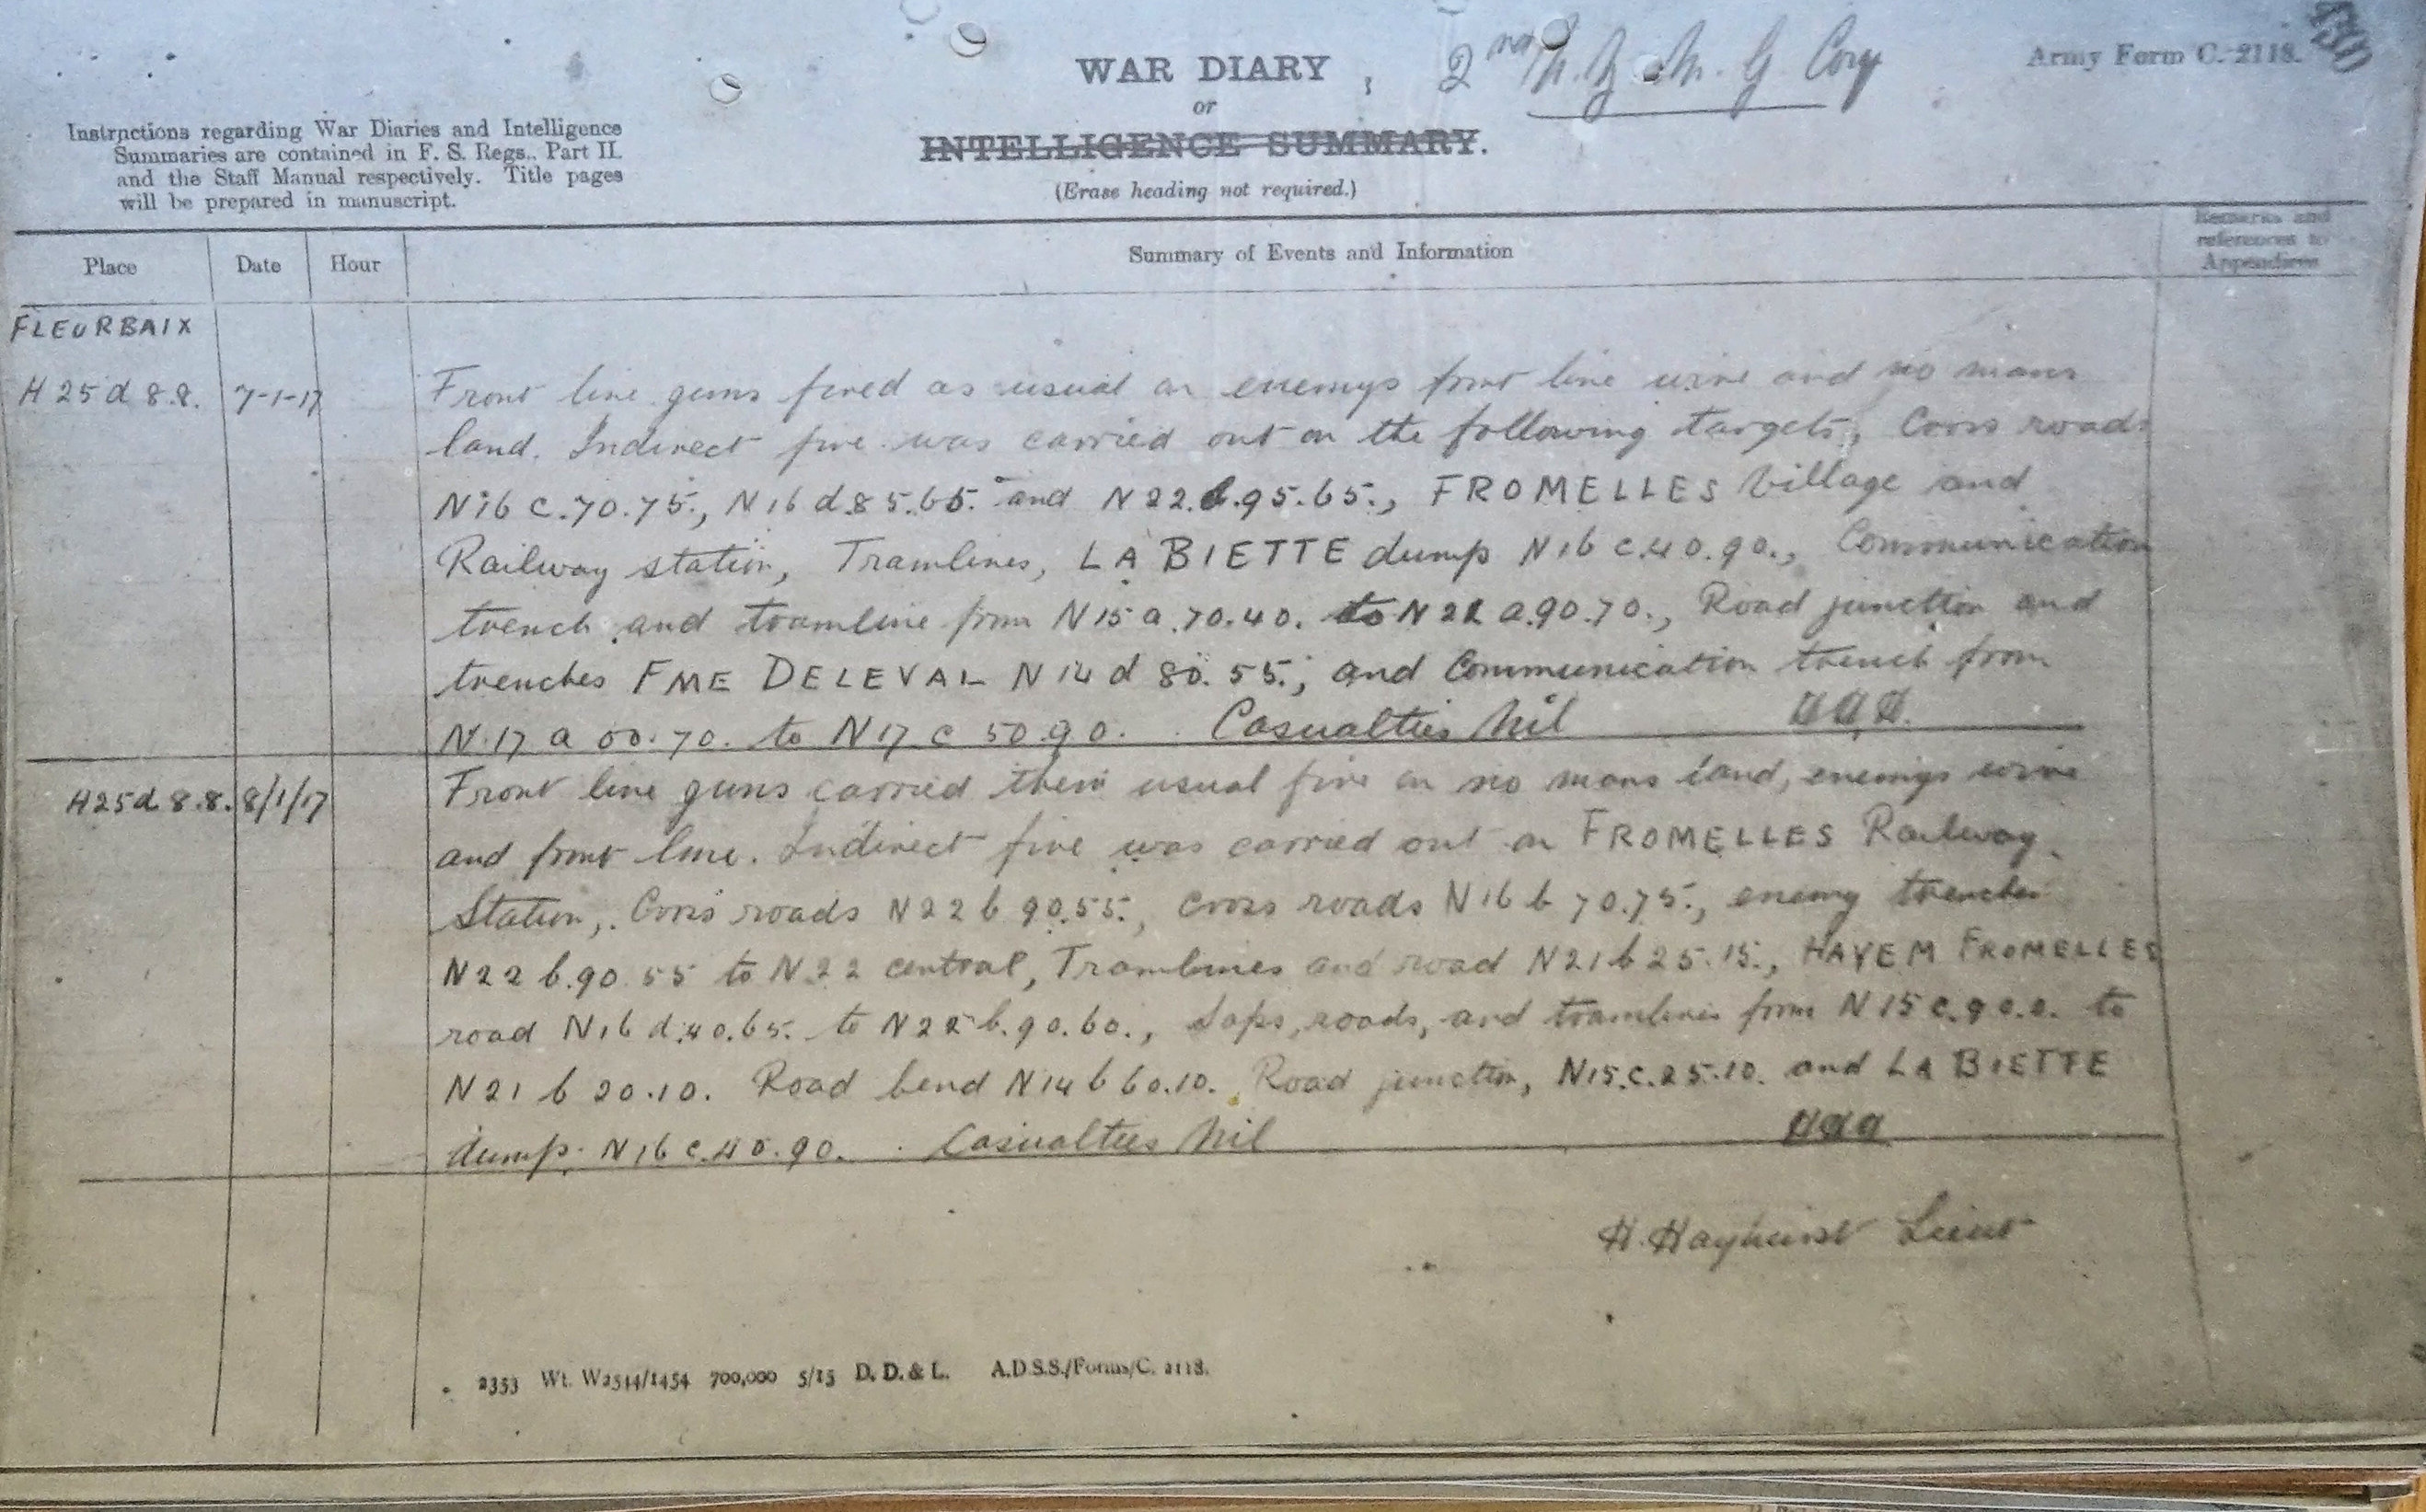 WAR DIARY , 2nd N.Z. M. G Coy
Army Form C. 2118.
or
INTELLIGENCE SUMMARY.
(Erase heading not required.)
Instructions regarding War Diaries and Intelligence
Summaries are contained in F. S. Regs., Part II.
and the Staff Manual respectively. Title pages
will be prepared in manuscript.
Place Date Hour Summary of Events and Information
Remarks and
references to
Appendices
FLEURBAIX
H 25 d 8.8. 7-1-17 Front line guns fired as usual on enemys front line wire and no mans
land. Indirect fire was carried out on the following targets, Cross roads
N16 c.70.75., N16 d.85.65. and N22.b.95.65., FROMELLES Village and
Railway station, Tramlines, LA BIETTE dump N16 c.40.90., Communication
trench and tramline from N15 a.70.40. to N22 a.90.70., Road junction and
trenches FME DELEVAL N14 d 80.55., and Communication trench from
N.17 a 00.70. to N17 c 50.90. Casualties Nil
H25d 8.8. 8/1/17 Front line guns carried their usual fire on no mans land, enemys wire
and front line. Indirect fire was carried out on FROMELLES Railway
Station, Cross roads N22 b 90.55., cross roads N16 b 70.75., enemy trenches
N22 b.90.55 to N.22 central, Tramlines and road N21 b 25.15., HAYEM FROMELLES
road N16 d.40.65. to N22 b.90.60., Saps, roads, and tramlines from N15 c.90.0. to
N21 b 20.10. Road bend N14 b 60.10. Road junction, N15.c.25.10. and LA BIETTE
dump. N16 c.40.90. Casualties Nil
H. Hayhurst Lieut
2353 Wt. W2544/1454 700,000 5/15 D. D. & L. A.D.S.S./Forms/C. 2118.